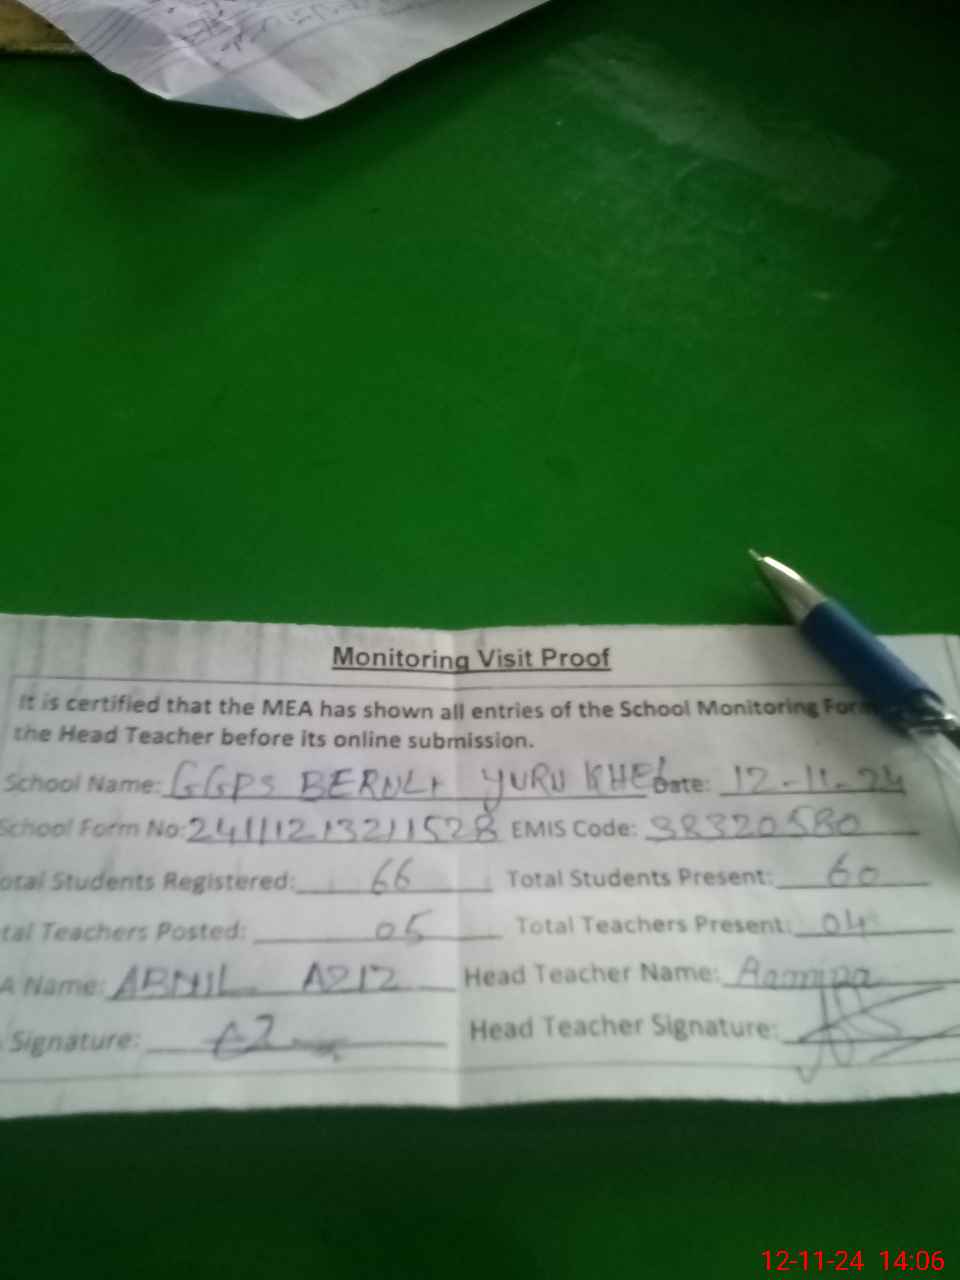 Monitoring Visit Proof
It is certified that the MEA has shown all entries of the School Monitoring Form
the Head Teacher before its online submission.
School Name: GGPS YURU KHEL Date: 12-11-24
School Form No: 24111213211528 EMIS Code: 38320580
otal Students Registered: 66 Total Students Present: 60
tal Teachers Posted: 05 Total Teachers Present: 04
A Name: AZIZ Head Teacher Name:
Signature: Head Teacher Signature:
12-11-24 14:06